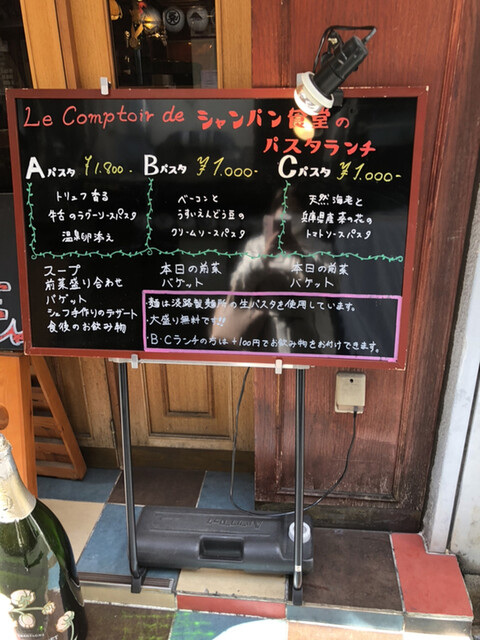 Le Comptoir de シャンパン食堂の
パスタランチ
Aパスタ ¥1.800-
トリュフ香る
牛舌のラグーソースパスタ
温泉卵添え
スープ
前菜盛り合わせ
バケット
シェフ手作りのデザート
食後のお飲み物
Bパスタ ¥1.000-
ベーコンと
うすいえんどう豆の
クリームソースパスタ
本日の前菜
バケット
Cパスタ ¥1.000-
天然海老と
兵庫県産菜の花の
トマトソースパスタ
本日の前菜
バケット
・麺は淡路製麺所の生パスタを使用しています。
・大盛り無料です!!
・B・Cランチの方は+100円でお飲み物をお付けできます。